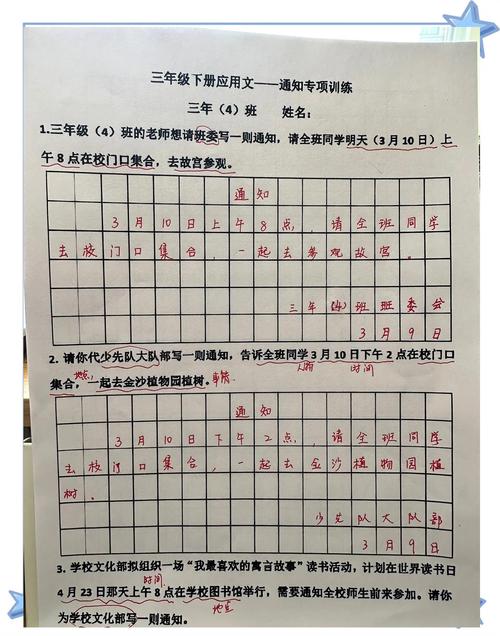 三年级下册应用文——通知专项训练
三年（4）班 姓名：
1.三年级（4）班的老师想请班委写一则通知，请全班同学明天（3月10日）上
午8点在校门口集合，去故宫参观。
通知
3月10日上午8点，请全班同学
去校门口集合，一起去参观故宫。
三年（4）班班委会
3月9日
2. 请你代少先队大队部写一则通知，告诉全班同学3月10日下午2点在校门口
人物 时间
集合，一起去金沙植物园植树。
地点 事情
通知
3月10日下午2点，请全班同学
去校门口集合，一起去金沙植物园植
树。
少先队大队部
3月9日
3. 学校文化部拟组织一场“我最喜欢的寓言故事”读书活动，计划在世界读书日
时间
4月23日那天上午8点在学校图书馆举行，需要通知全校师生前来参加。请你
地点
为学校文化部写一则通知。